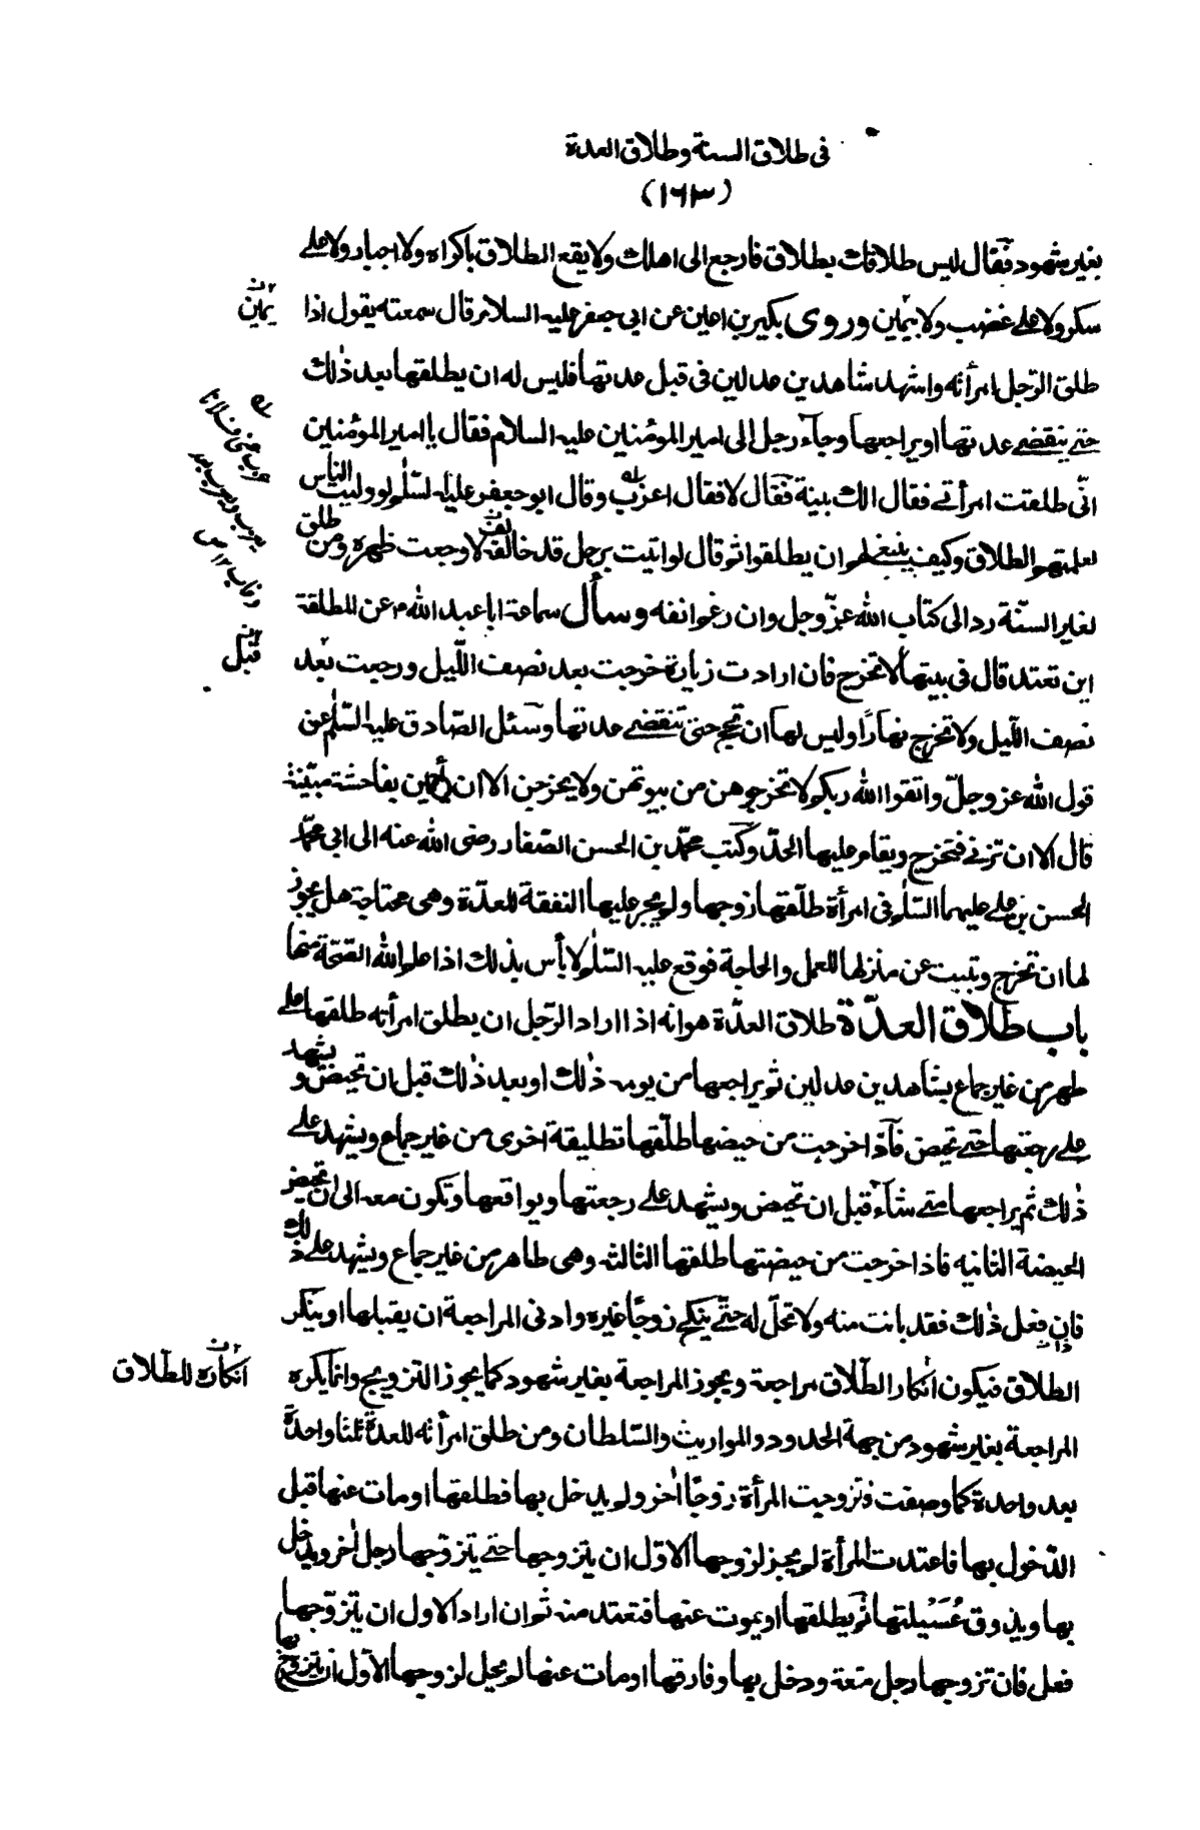 فى طلاق السنة وطلاق العدة
(١٦٣)
بغير شهود فقال ليس طلاقك بطلاق فارجع الى اهلك ولا يقع الطلاق باكراه ولا اجبار ولا على
سكر ولا على غضب ولا بيمين وروى بكير بن اعين عن ابى جعفر عليه السلام قال سمعته يقول اذا
يمين
طلق الرّجل امرأته واشهد شاهدين عدلين فى قبل عدتها فليس له ان يطلقها بعد ذٰلك
حتى ينقضى عدتها او يراجعها وجآء رجل الى امير المؤمنين عليه السلام فقال يا امير المؤمنين
انّى طلقت امرأتى فقال الك بينة فقال لا فقال اعزب وقال ابو جعفر عليه السّلٰم لو وليت الناس
لعلمتهم الطلاق وكيف ينبغى لهم ان يطلقوا ثم قال لو اتيت برجل قد خالفه لاوجعت ظهره ومن طلق
لغير السنّة رد الى كتاب الله عزّ وجل وان رغم انفه وسأل سماعة ابا عبد الله ع عن المطلقة
اين تعتد قال فى بيتها لا تخرج فان ارادت زيارة خرجت بعد نصف اللّيل ورجعت بعد
قبل
نصف اللّيل ولا تخرج نهارًا وليس لها ان تحج حتى تنقضى عدتها وسئل الصّادق عليه السّلٰم عن
قول الله عز وجلّ واتقوا الله ربكم لا تخرجوهن من بيوتهن ولا يخرجن الا ان يأتين بفاحشة مبيّنة
قال الا ان تزنى فتخرج ويقام عليها الحدّ وكتب محمّد بن الحسن الصّفار رضى الله عنه الى ابى محمّد
الحسن بن على عليهما السّلٰم فى امرأة طلّقها زوجها ولم يجر عليها النفقة للعدّة وهى محتاجة هل يجوز
لها ان تخرج وتبيت عن منزلها للعمل والحاجة فوقع عليه السّلٰم لا بأس بذلك اذا علم الله الصّحّة منها
باب طلاق العدّة طلاق العدّة هو انه اذا اراد الرّجل ان يطلق امرأته طلقها على
طهر من غير جماع بشاهدين عدلين ثم يراجعها من يومه ذٰلك او بعد ذٰلك قبل ان تحيض ويشهد
على رجعتها حتى تحيض فاذا خرجت من حيضها طلّقها تطليقة اخرى من غير جماع ويشهد على
ذٰلك ثم يراجعها متى شآء قبل ان تحيض ويشهد على رجعتها ويواقعها وتكون معه الى ان تحيض
الحيضة الثانيه فاذا خرجت من حيضتها طلقها الثالثه وهى طاهر من غير جماع ويشهد على ذٰلك
فان فعل ذٰلك فقد بانت منه ولا تحلّ له حتّى ينكح زوجًا غيره وادنى المراجعة ان يقبلها او ينكر
الطلاق فيكون انكار الطّلاق مراجعة ويجوز المراجعة بغير شهود كما يجوز التزويج وانما يكره
انكاره للطّلاق
المراجعة بغير شهود من جهة الحدود والمواريث والسّلطان ومن طلق امرأته للعدة ثلثا واحدة
بعد واحدة كما وصفت وتزوجت المرأة زوجًا اٰخر ولم يدخل بها فطلقها او مات عنها قبل
الدّخول بها فاعتدت المرأة لم يجز لزوجها الاوّل ان يتزوجها حتى يتزوّجها رجل اٰخر ويدخل
بها ويذوق عُسَيْلتها ثم يطلقها او يموت عنها فتعتد منه ثم ان اراد الاول ان يتزوّجها
فعل فان تزوجها رجل متعة ودخل بها وفارقها او مات عنها لم يحل لزوجها الاوّل ان يتزوج بها